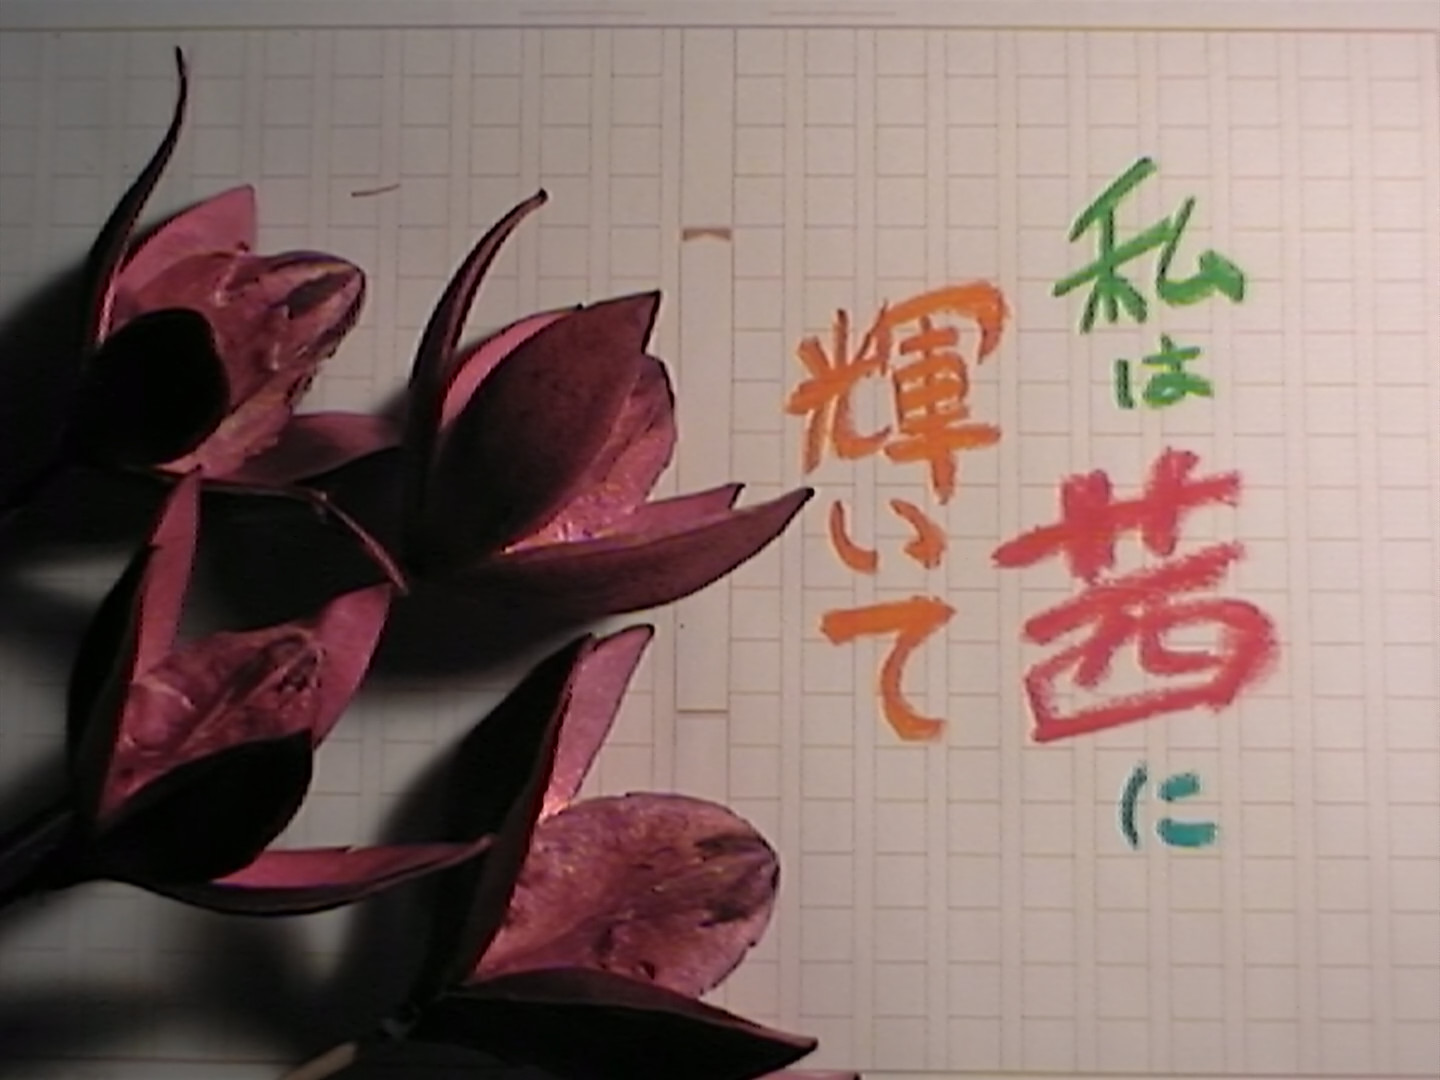 私は茜に
輝いて